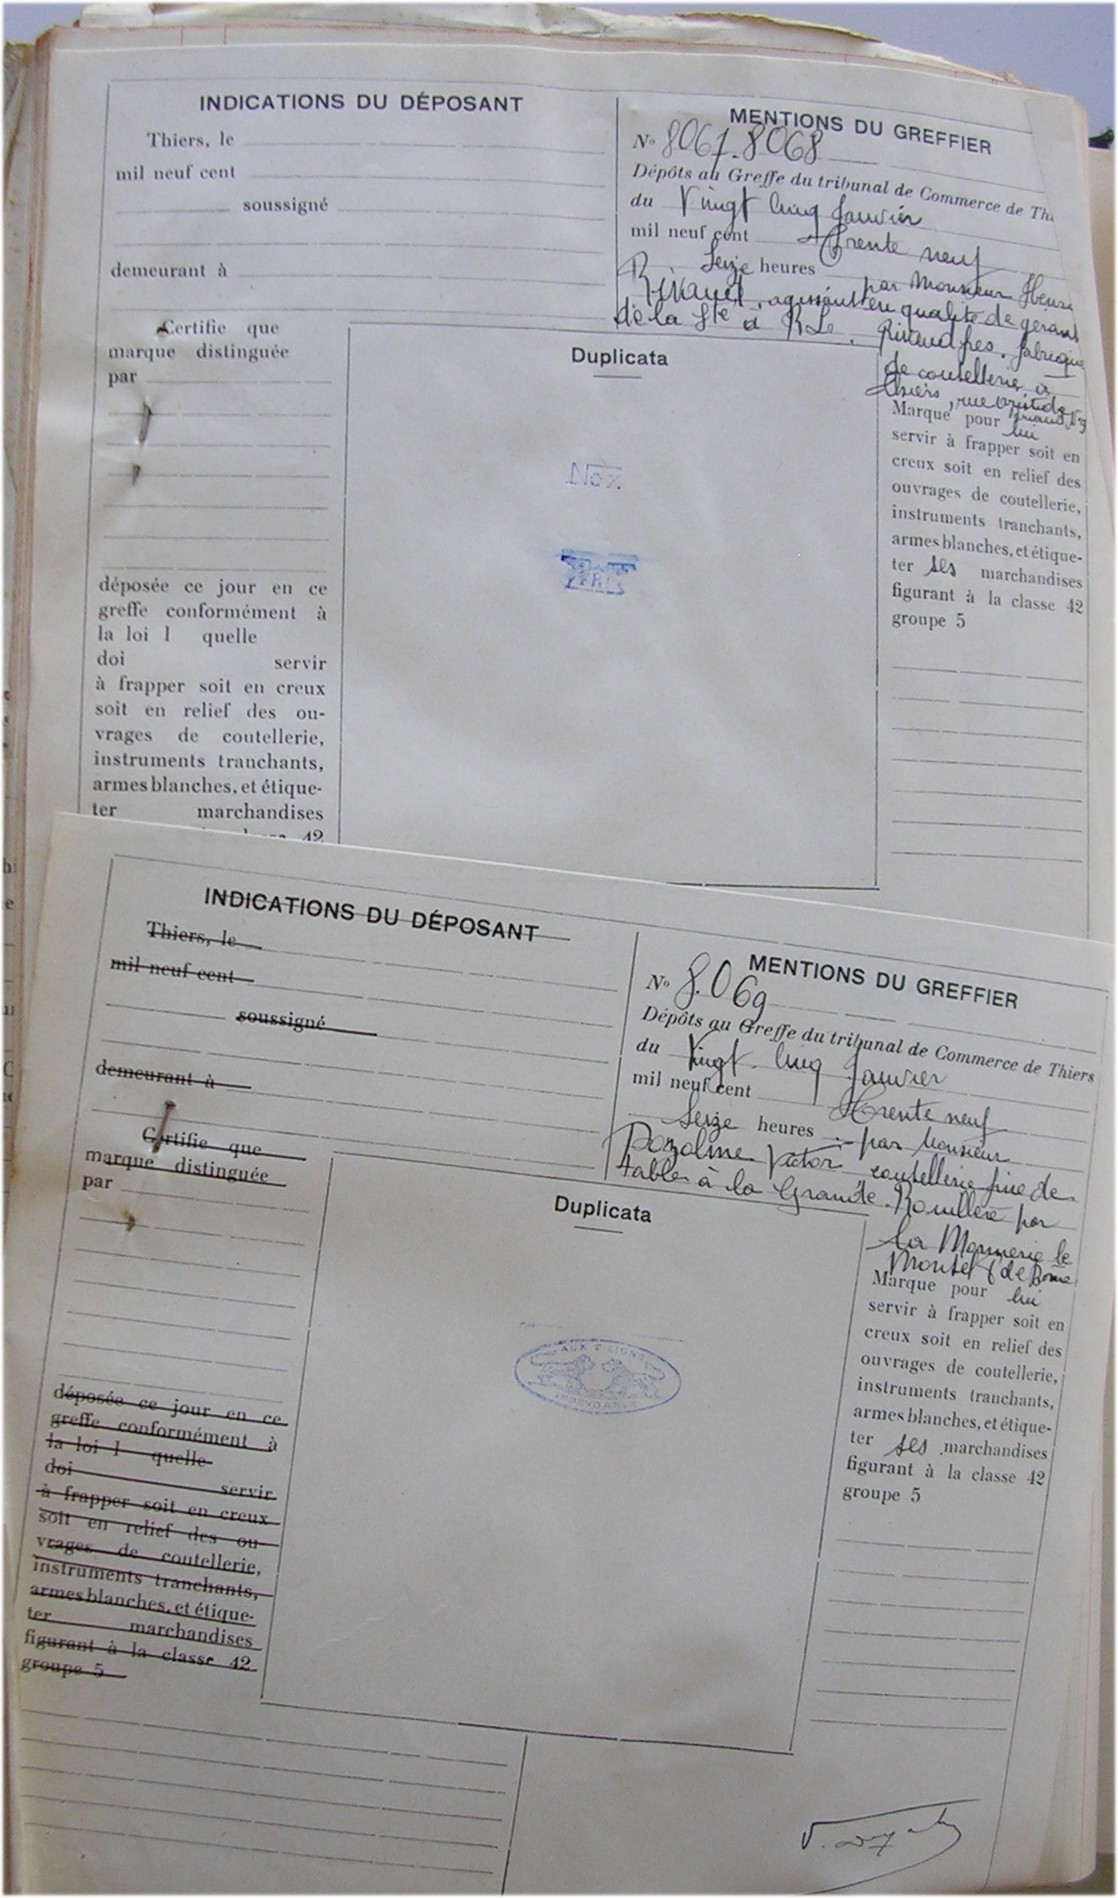 INDICATIONS DU DÉPOSANT
Thiers, le
mil neuf cent
soussigné
demeurant à
Certifie que
marque distinguée
par
déposée ce jour en ce
greffe conformément à
la loi l quelle
doi servir
à frapper soit en creux
soit en relief des ou-
vrages de coutellerie,
instruments tranchants,
armes blanches, et étique-
ter marchandises
42
MENTIONS DU GREFFIER
No 8067.8068
Dépôts au Greffe du tribunal de Commerce de Thi
du Vingt cinq Janvier
mil neuf cent trente neuf
Seize heures par Monsieur Henri
Rivaud, agissant en qualité de gérant
de la Sté à R.L. Rivaud fres. fabrique
de coutellerie à
Thiers, rue Aristide Briand
Marque pour lui
servir à frapper soit en
creux soit en relief des
ouvrages de coutellerie,
instruments tranchants,
armes blanches, et étique-
ter ses marchandises
figurant à la classe 42
groupe 5
Duplicata
INDICATIONS DU DÉPOSANT
Thiers, le
mil neuf cent
soussigné
demeurant à
Certifie que
marque distinguée
par
déposée ce jour en ce
greffe conformément à
la loi l quelle
doi servir
à frapper soit en creux
soit en relief des ou-
vrages de coutellerie,
instruments tranchants,
armes blanches, et étique-
ter marchandises
figurant à la classe 42
groupe 5
MENTIONS DU GREFFIER
No 8.069
Dépôts au Greffe du tribunal de Commerce de Thiers
du Vingt. cinq Janvier
mil neuf cent trente neuf
Seize heures par Monsieur
Victor coutellerie fine de
tables à la Grande par
la Monnerie le
Montel
Marque pour lui
servir à frapper soit en
creux soit en relief des
ouvrages de coutellerie,
instruments tranchants,
armes blanches, et étique-
ter ses marchandises
figurant à la classe 42
groupe 5
Duplicata
AUX 2 LIONS